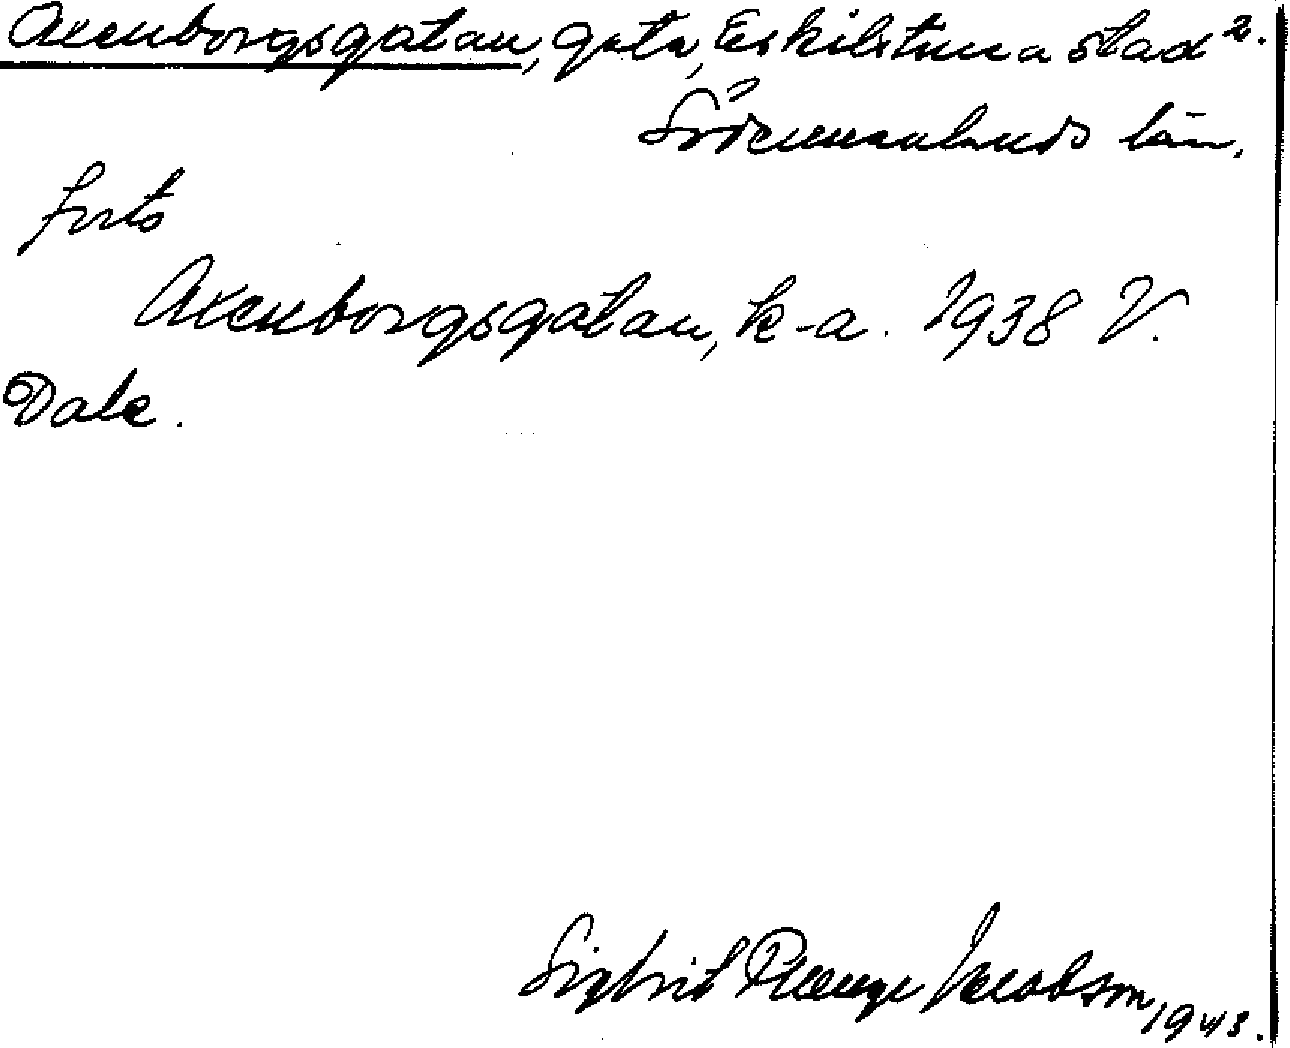 Axenborgsgatan, gata, Eskilstuna stad 2.
Södermanlands län.
forts
Axenborgsgatan, k-a. 1938 V.
Dale.
Sigfrid Jacobson, 1943.